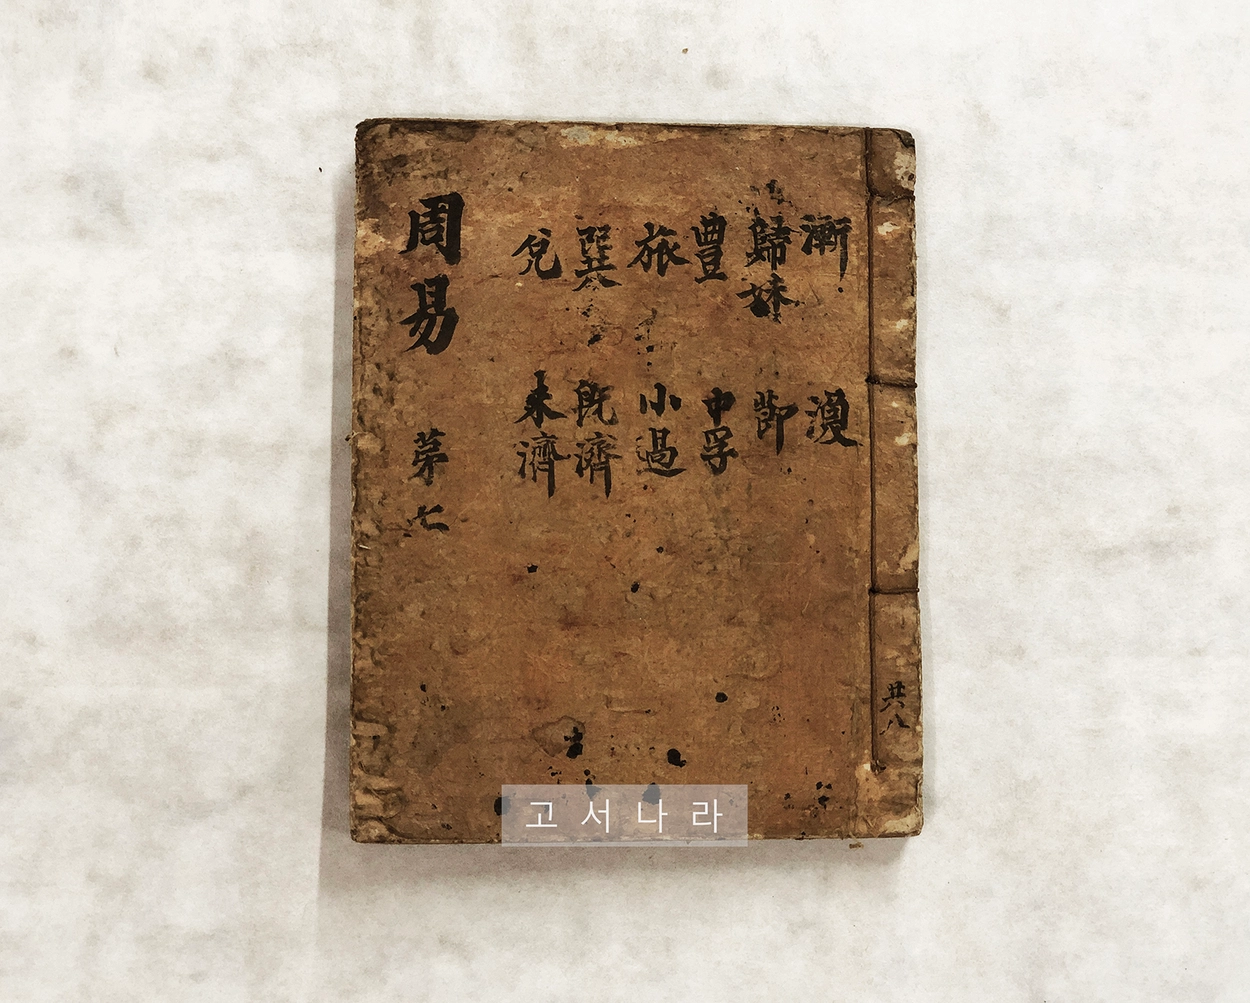 共八
漸 渙
歸妹 節
豊 中孚
旅 小過
巽 既濟
兌 未濟
周易 苐七
고서나라